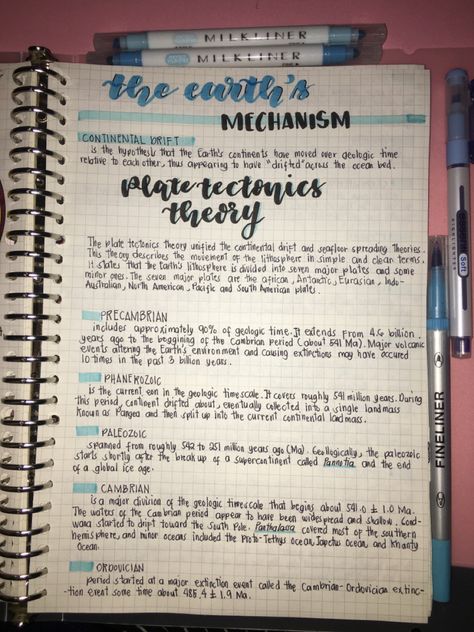 MILKLINER
MILKLINER
the earth's
MECHANISM
CONTINENTAL DRIFT
is the hypothesis that the Earth's continents have moved over geologic time
relative to each other, thus appearing to have "drifted" across the ocean bed.
plate tectonics
theory
The plate tectonics theory unified the continental drift and seafloor spreading theories.
This theory describes the movement of the lithosphere in simple and clear terms.
It states that the Earth's lithosphere is divided into seven major plates and some
minor ones. The seven major plates are the african, Antarctic, Eurasian, Indo-
Australian, North American, Pacific and South American plates.
PRECAMBRIAN
includes approximately 90% of geologic time. It extends from 4.6 billion
years ago to the beggining of the Cambrian period (about 541 Ma). Major volcanic
events altering the Earth's environment and causing extinctions may have occured
10 times in the past 3 billion years.
PHANEROZOIC
is the current eon in the geologic timescale. It covers roughly 541 million years. During
this period, continent drifted about, eventually collected into a single landmass
known as Pangea and then split up into the current continental landmass.
PALEOZOIC
spanned from roughly 542 to 251 million years ago (Ma). Geollogically, the paleozoic
starts shortly after the breakup of a supercontinent called Pannotia and the end
of a global ice age.
CAMBRIAN
is a major division of the geologic timescale that begins about 541.0 ± 1.0 Ma.
The waters of the Cambrian period appear to have been widespread and shallow. Gond-
wana started to drift toward the South Pole. Panthalassa covered most of the southern
hemisphere, and minor oceans included the Proto-Tethys Ocean, Iapetus Ocean, and Khanty
Ocean.
ORDOVICIAN
period started at a major extinction event called the Cambrian-Ordovician extinc-
-tion event some time about 485.4 ± 1.9 Ma.
Soft
HIGHLIGHTER
FINELINER